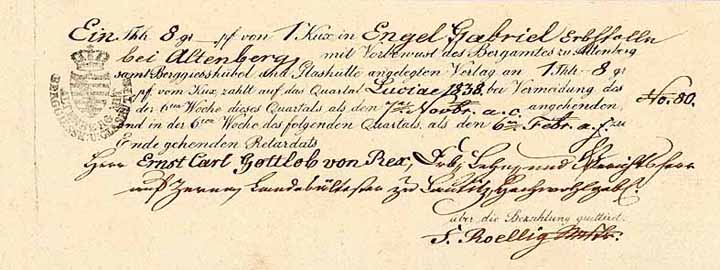 Ein Thlr. 8 gr. _ pf von 1. Kux in Engel Gabriel Erbstolln
bei Altenberg, mit Vorbewust des Bergamtes zu Altenberg
samt Berggieshübel und Glashütte angelegten Verlag an 1 Thlr. 8 gr
_ pf vom Kux, zahlt auf das Quartal Luciae 1838. bei Vermeidung des
in der 6ten Woche dieses Quartals als den 7ten Novbr. a. c. angehenden, No. 80.
und in der 6ten Woche des folgenden Quartals, als den 6ten Febr. a. f. zu
Ende gehenden Retardats
Herr Ernst Carl Gottlob von Rex, Erb, Lehn, und Gerichtsherr
auf
über die Bezahlung quittirt.
Roellig